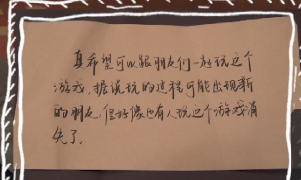 真希望可以跟朋友们一起玩这个
游戏，据说玩的过程可能出现新
的朋友，但好像也有人玩这个游戏消
失了。